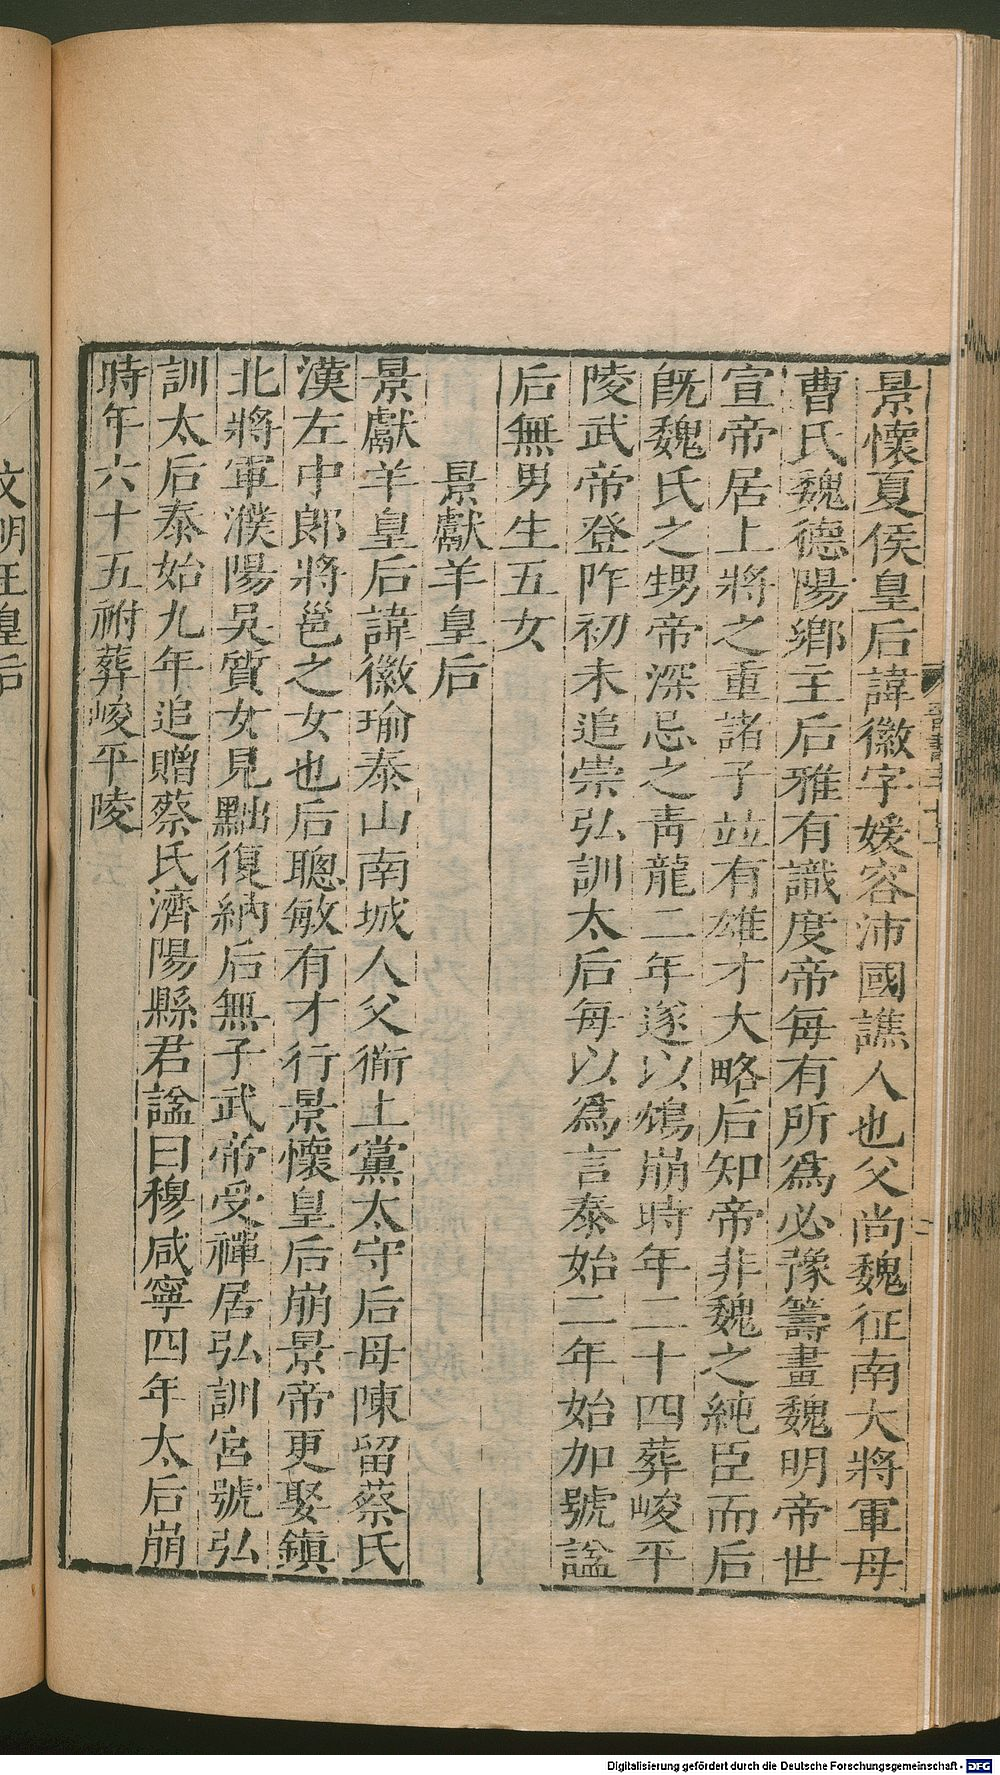 景懷夏侯皇后諱徽字媛容沛國譙人也父尚魏征南大將軍母
曹氏魏德陽鄉主后雅有識度帝每有所爲必豫籌畫魏明帝世
宣帝居上將之重諸子並有雄才大略后知帝非魏之純臣而后
旣魏氏之甥帝深忌之靑龍二年遂以鴆崩時年二十四葬峻平
陵武帝登阼初未追崇弘訓太后每以爲言泰始二年始加號諡
后無男生五女
景獻羊皇后
景獻羊皇后諱徽瑜泰山南城人父衜上黨太守后母陳留蔡氏
漢左中郎將邕之女也后聰敏有才行景懷皇后崩景帝更娶鎮
北將軍濮陽吳質女見黜復納后無子武帝受禪居弘訓宮號弘
訓太后泰始九年追贈蔡氏濟陽縣君諡曰穆咸寧四年太后崩
時年六十五祔葬峻平陵
文明王皇后
Digitalisierung gefördert durch die Deutsche Forschungsgemeinschaft - DFG